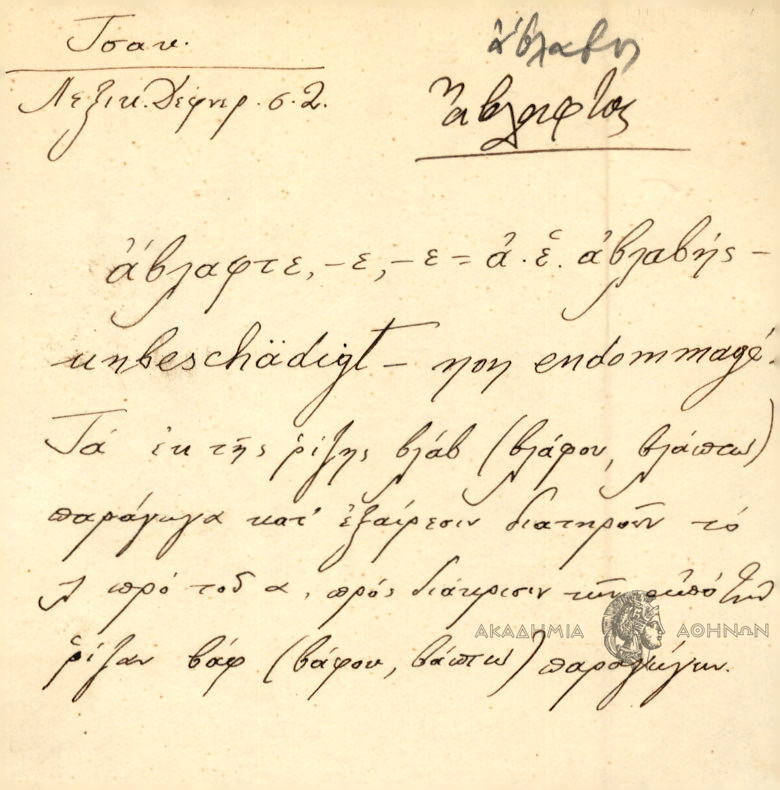 Τσακ.
ἀβλαβὴς
Λεξικ. Δέφνερ. σ. 2.
ἄβλαφτος
ἄβλαφτε, -ε, -ε = ἀ. ἐ. ἀβλαβής -
unbeschädigt - non endommagé.
Τά ἐκ τῆς ρίζης βλάβ (βλάφου, βλάπτω)
παράγωγα κατ' ἐξαίρεσιν διατηροῦν τό
λ πρό τοῦ α, πρός διάκρισιν τῶν ἀπό τήν
ρίζαν βάφ (βάφου, βάπτω) παραγώγων.
ΑΚΑΔΗΜΙΑ ΑΘΗΝΩΝ